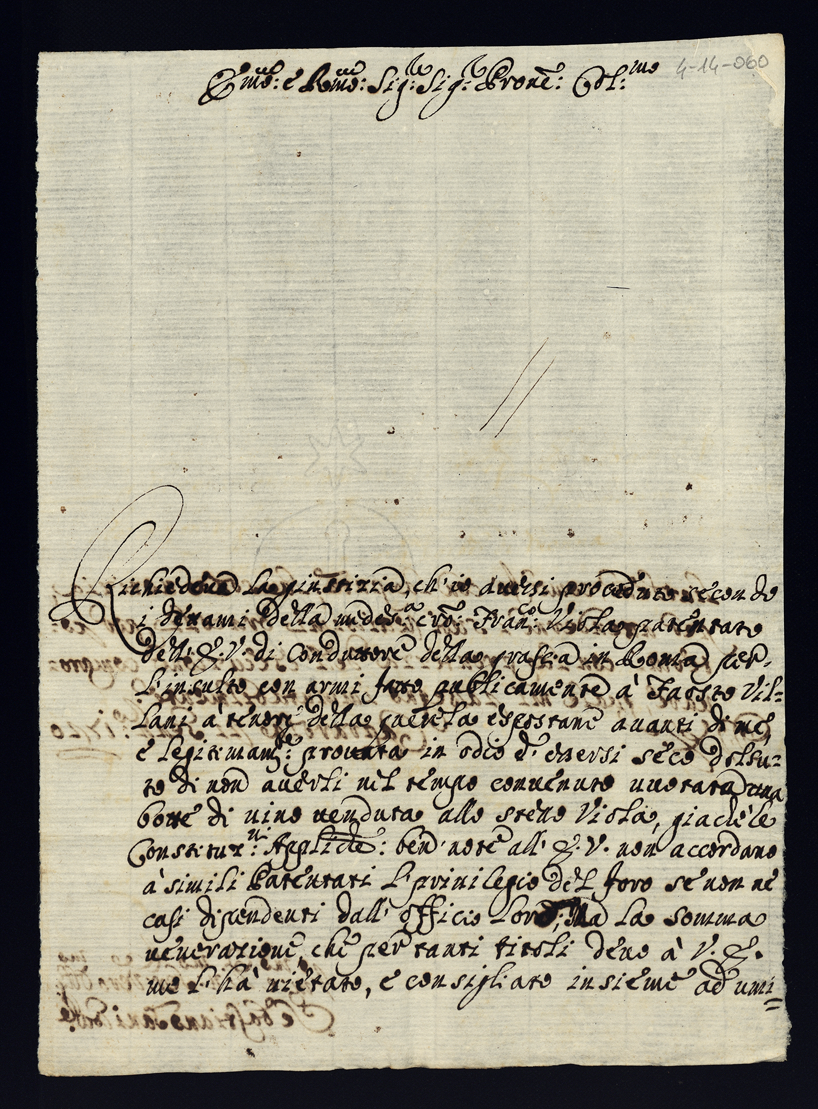 Em̃o: e Rm̃o: Sig:re Sig:re Prone: Col:mo
4-14-060
Richiedeva la giustizia, ch'io avessi proceduto secondo
i dettami della medes:a cro: Fran:co Viola patentato
dell'E.V. di Conduttore della grascia in Roma per
l'insulto con armi fatto publicamente à Fausto Vil=
lani à tenore della querela espostane avanti di me,
e legitimam:te provata in odio d'essersi seco doltu=
to di non averli nel tempo convenuto vuotata una
botte di vino venduta allo stesso Viola, giache le
Constituz:ni Appliche: ben note all'E.V. non accordano
à simili Patentati l'privilegio del foro se non ne
casi dipendenti dall'officio loro; Ma la somma
venerazione, che per tanti titoli devo à V.E.
me l'hà vietato, e consigliato insieme ad umi=